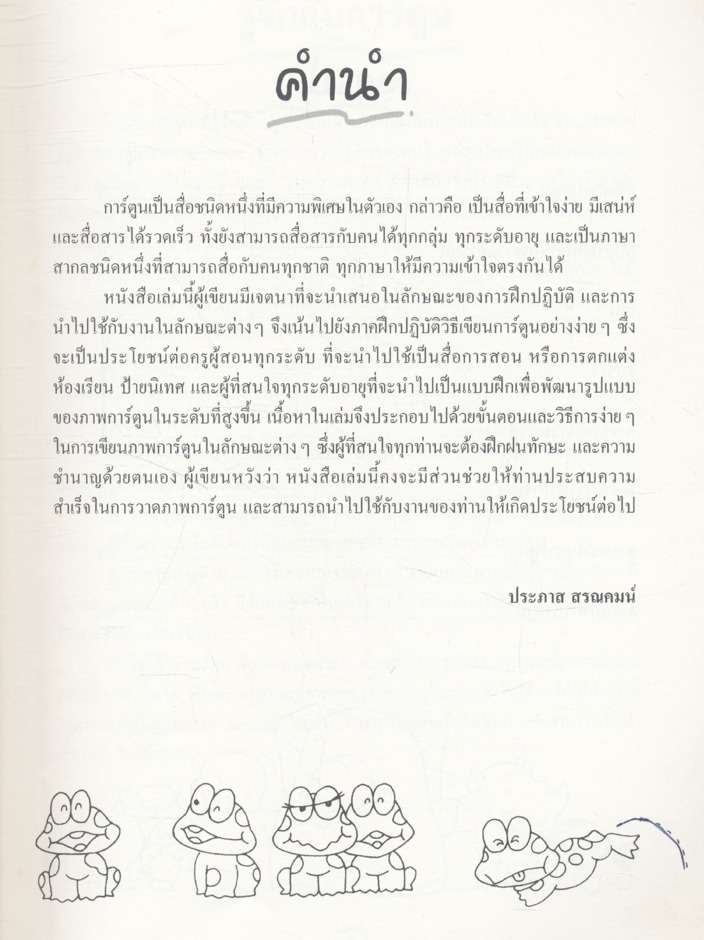 คำนำ
การ์ตูนเป็นสื่อชนิดหนึ่งที่มีความพิเศษในตัวเอง กล่าวคือ เป็นสื่อที่เข้าใจง่าย มีเสน่ห์
และสื่อสารได้รวดเร็ว ทั้งยังสามารถสื่อสารกับคนได้ทุกกลุ่ม ทุกระดับอายุ และเป็นภาษา
สากลชนิดหนึ่งที่สามารถสื่อกับคนทุกชาติ ทุกภาษาให้มีความเข้าใจตรงกันได้
หนังสือเล่มนี้ผู้เขียนมีเจตนาที่จะนำเสนอในลักษณะของการฝึกปฏิบัติ และการ
นำไปใช้กับงานในลักษณะต่างๆ จึงเน้นไปยังภาคฝึกปฏิบัติวิธีเขียนการ์ตูนอย่างง่ายๆ ซึ่ง
จะเป็นประโยชน์ต่อครูผู้สอนทุกระดับ ที่จะนำไปใช้เป็นสื่อการสอน หรือการตกแต่ง
ห้องเรียน ป้ายนิเทศ และผู้ที่สนใจทุกระดับอายุที่จะนำไปเป็นแบบฝึกเพื่อพัฒนารูปแบบ
ของภาพการ์ตูนในระดับที่สูงขึ้น เนื้อหาในเล่มจึงประกอบไปด้วยขั้นตอนและวิธีการง่ายๆ
ในการเขียนภาพการ์ตูนในลักษณะต่างๆ ซึ่งผู้ที่สนใจทุกท่านจะต้องฝึกฝนทักษะ และความ
ชำนาญด้วยตนเอง ผู้เขียนหวังว่า หนังสือเล่มนี้คงจะมีส่วนช่วยให้ท่านประสบความ
สำเร็จในการวาดภาพการ์ตูน และสามารถนำไปใช้กับงานของท่านให้เกิดประโยชน์ต่อไป
ประภาส สรณคมน์